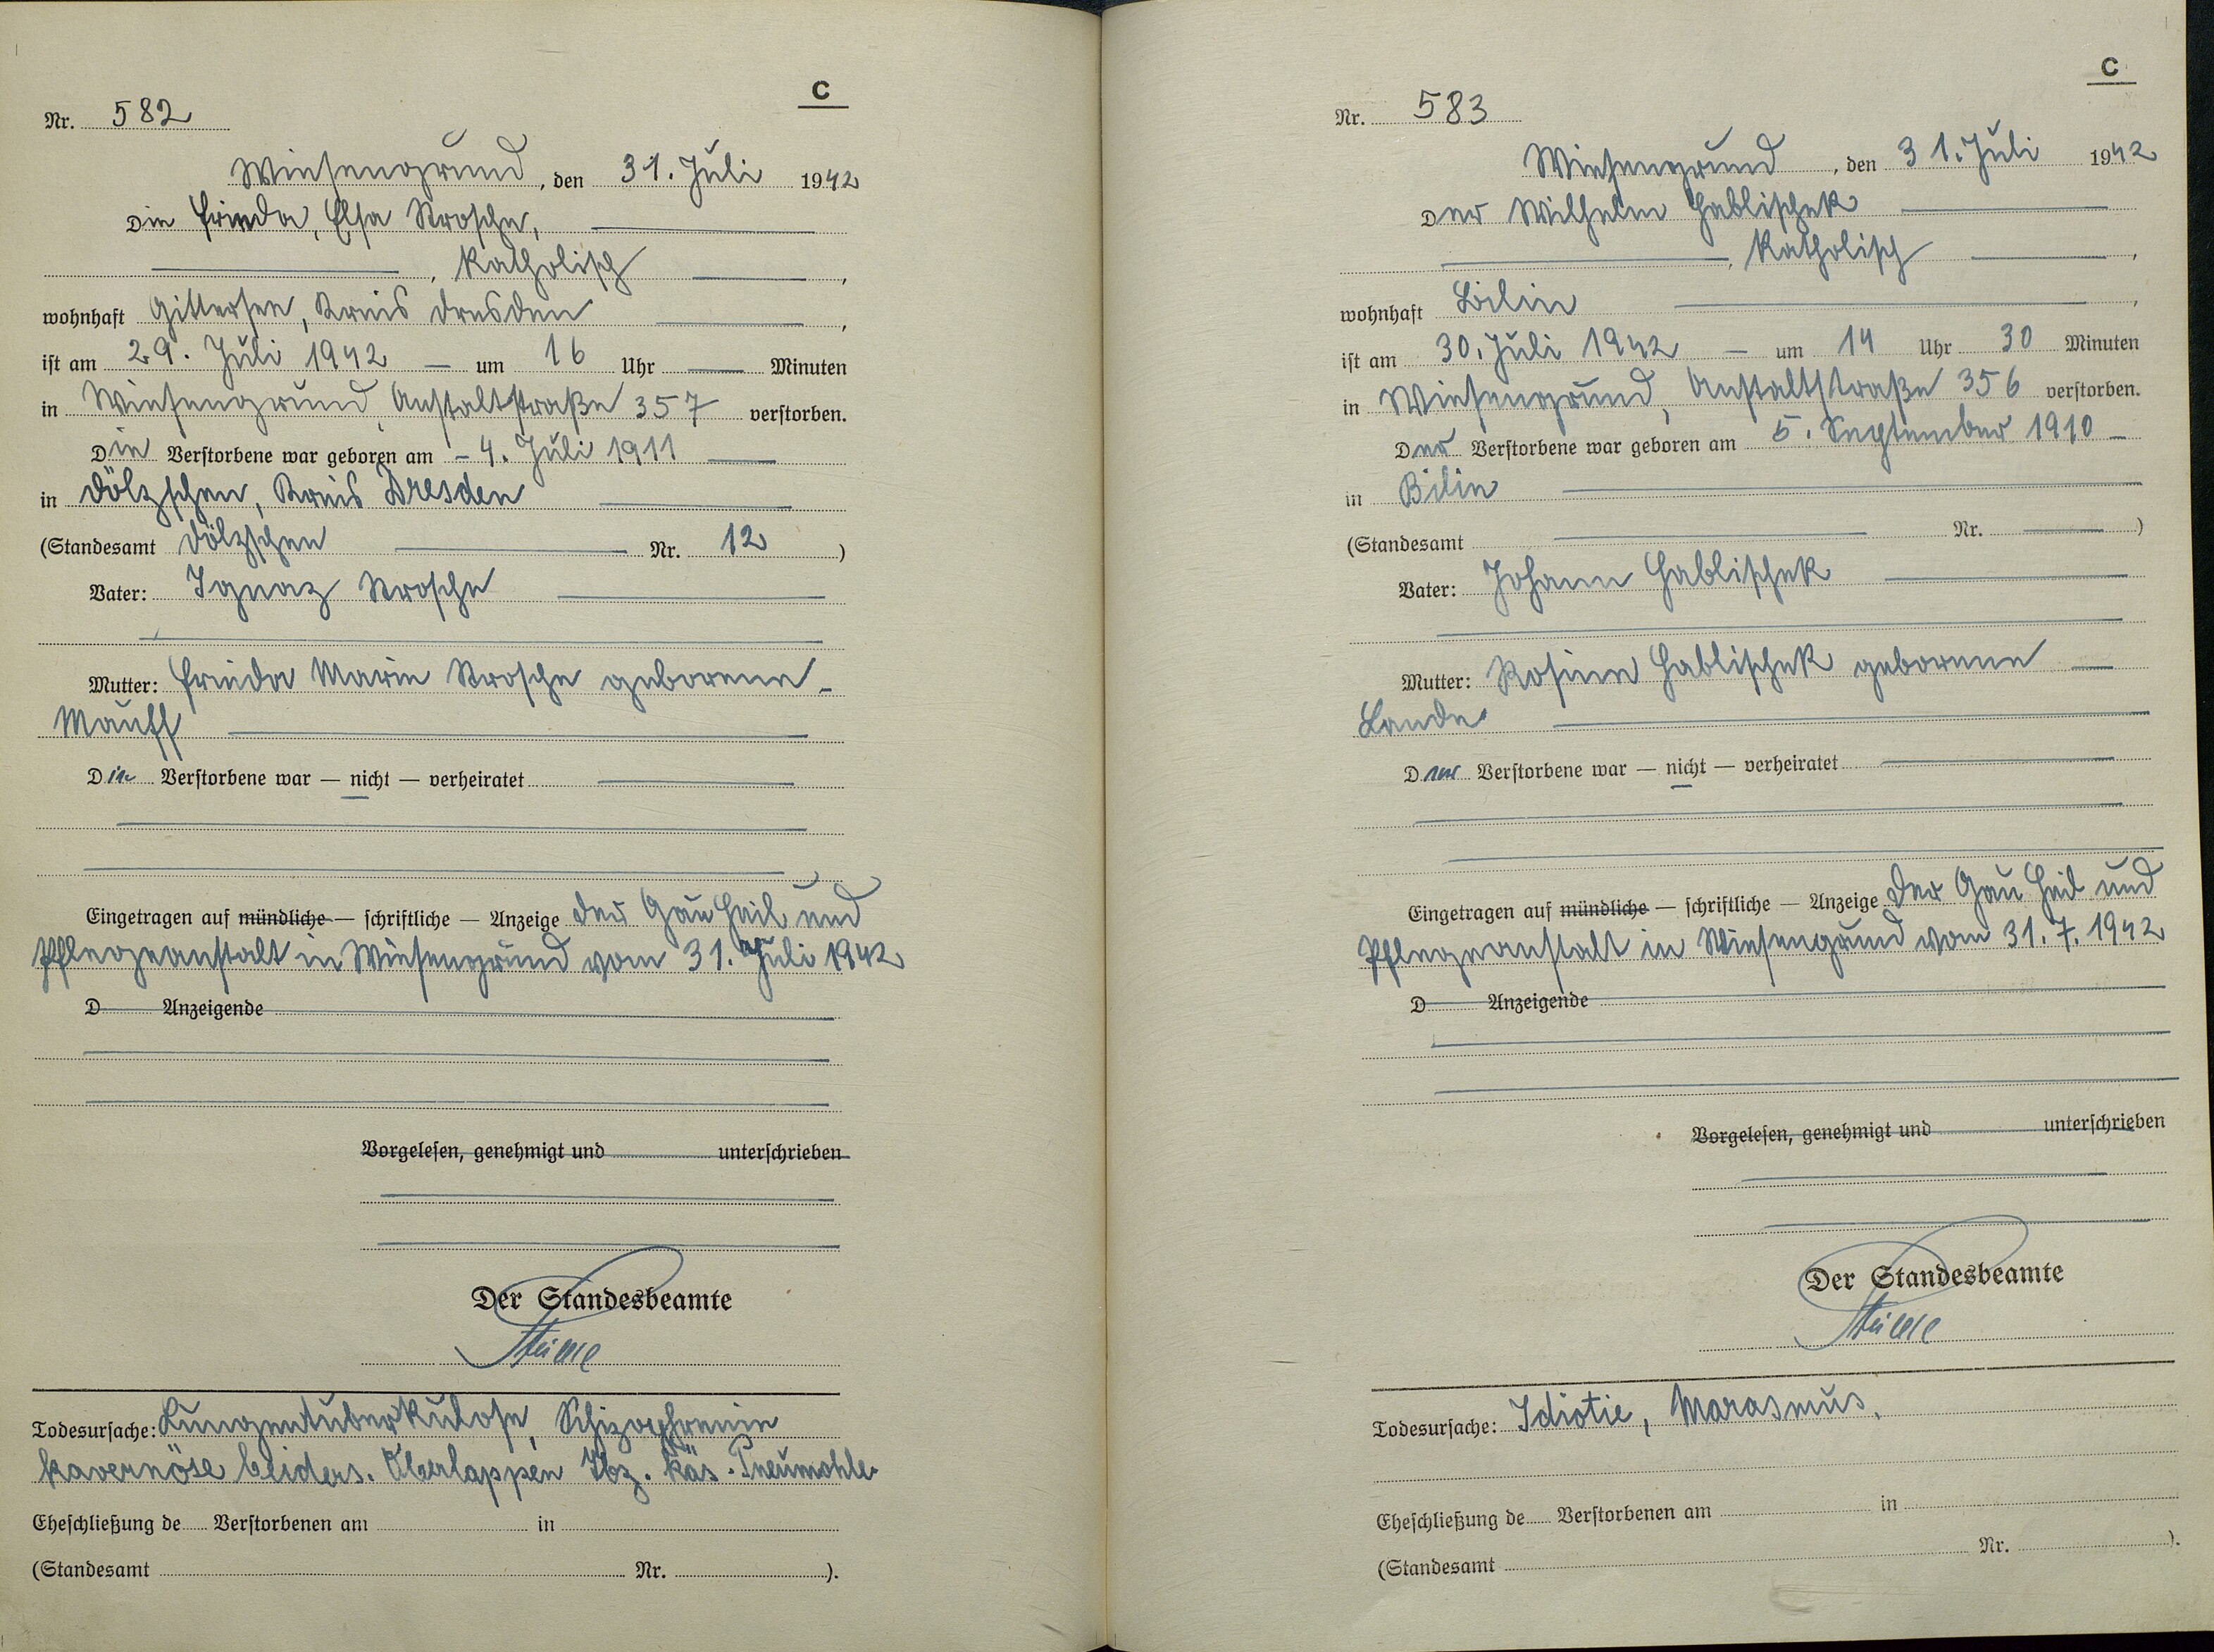 C
Nr. 582
Wiesengrund, den 31. Juli 1942
Die Frieda, Elsa Krosche,
, katholisch ,
wohnhaft Gittersee, Kreis Dresden ,
ist am 29. Juli 1942 — um 16 Uhr — Minuten
in Wiesengrund, Anstaltstraße 357 verstorben.
Die Verstorbene war geboren am - 4. Juli 1911
in Dölzschen, Kreis Dresden
(Standesamt Dölzschen Nr. 12 )
Vater: Ignaz Krosche
Mutter: Frieda Marie Krosche geborene -
Mauff
Die Verstorbene war — nicht — verheiratet
Eingetragen auf mündliche — schriftliche — Anzeige der Gau Heil und
Pflegeanstalt in Wiesengrund vom 31. Juli 1942
D Anzeigende
Vorgelesen, genehmigt und unterschrieben
Der Standesbeamte
Todesursache: Lungentuberkulose, Schizophrenie
kavernöse beiders. Oberlappen Tbz. käs.
Eheschließung de Verstorbenen am in
(Standesamt Nr. ).
C
Nr. 583
Wiesengrund, den 31. Juli 1942
Der Wilhelm Hablischek
, katholisch ,
wohnhaft Bilin ,
ist am 30. Juli 1942 — um 14 Uhr 30 Minuten
in Wiesengrund, Anstaltstraße 356 verstorben.
Der Verstorbene war geboren am 5. September 1910 —
in Bilin
(Standesamt Nr. )
Vater: Johann Hablischek
Mutter: Rosine Hablischek geborene —
Lande
Der Verstorbene war — nicht — verheiratet
Eingetragen auf mündliche — schriftliche — Anzeige der Gau Heil und
Pflegeanstalt in Wiesengrund vom 31. 7. 1942
D Anzeigende
Vorgelesen, genehmigt und unterschrieben
Der Standesbeamte
Todesursache: Idiotie, Marasmus.
Eheschließung de Verstorbenen am in
(Standesamt Nr. ).